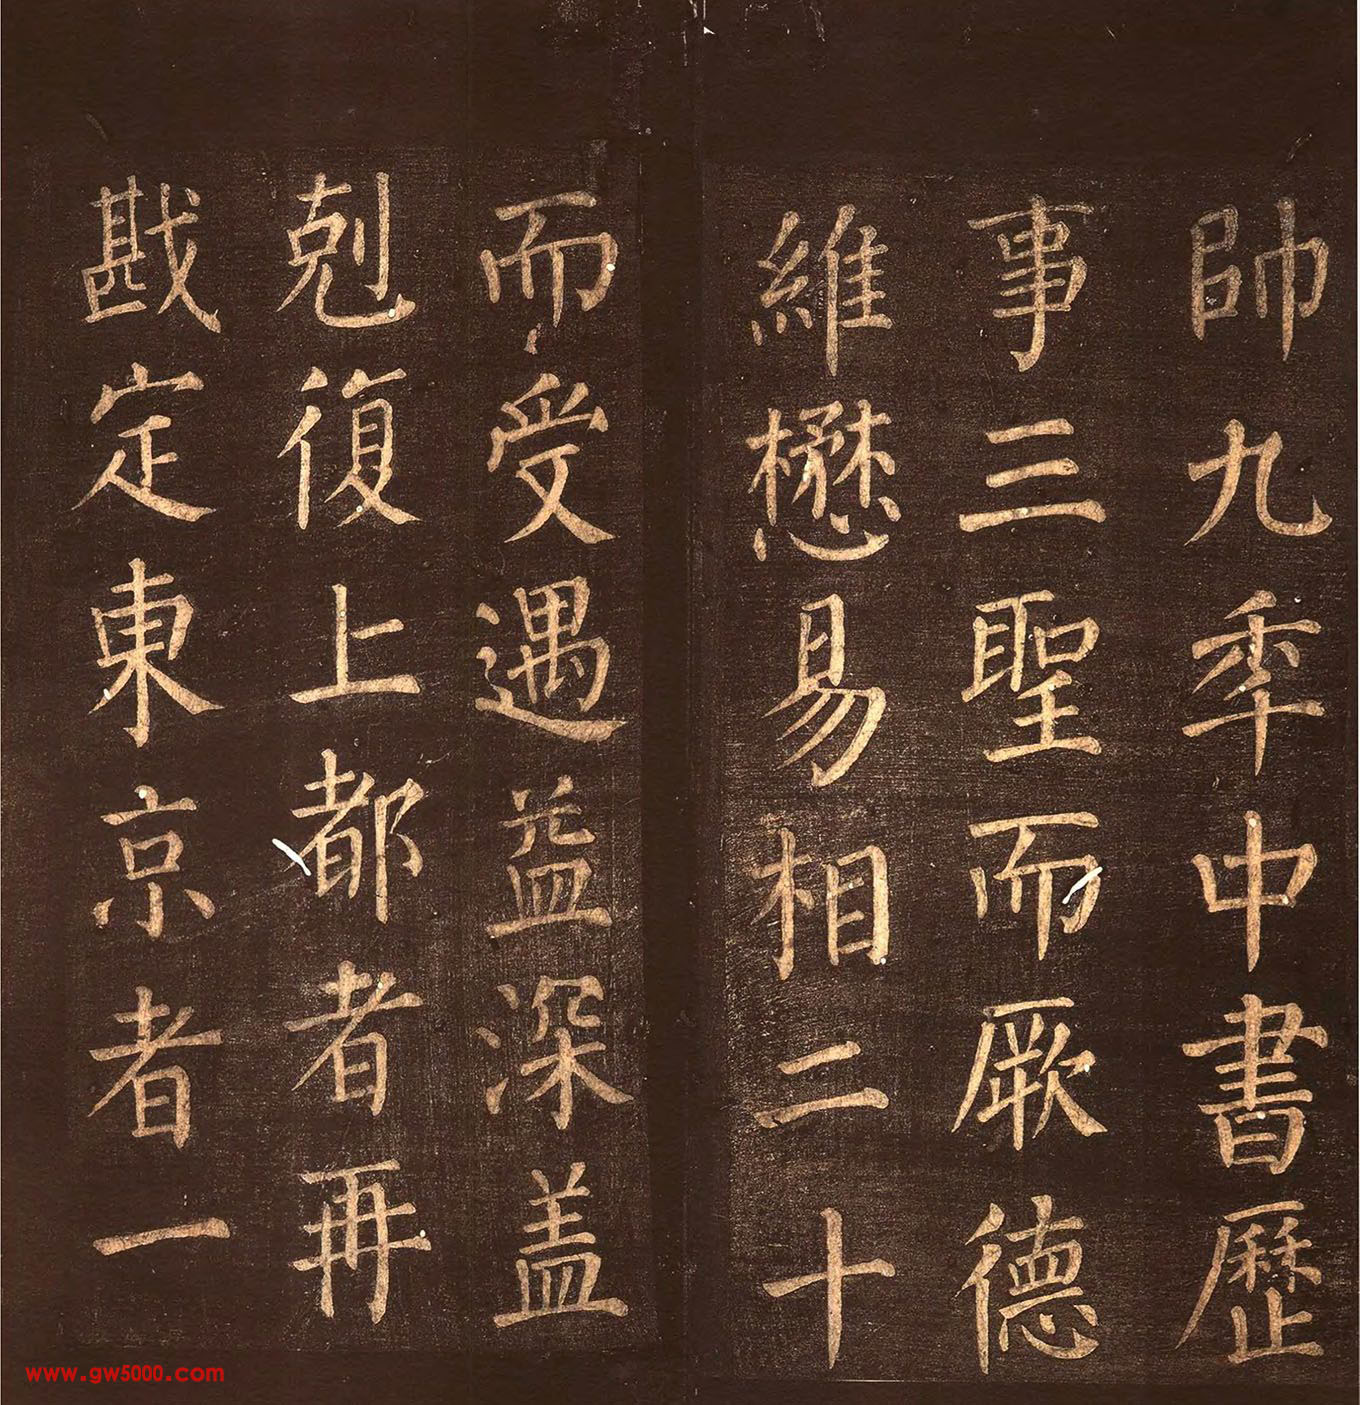 帥九秊中書歷
事三聖而厥德
維懋易相二十
而受遇益深蓋
剋復上都者再
戡定東京者一
www.gw5000.com